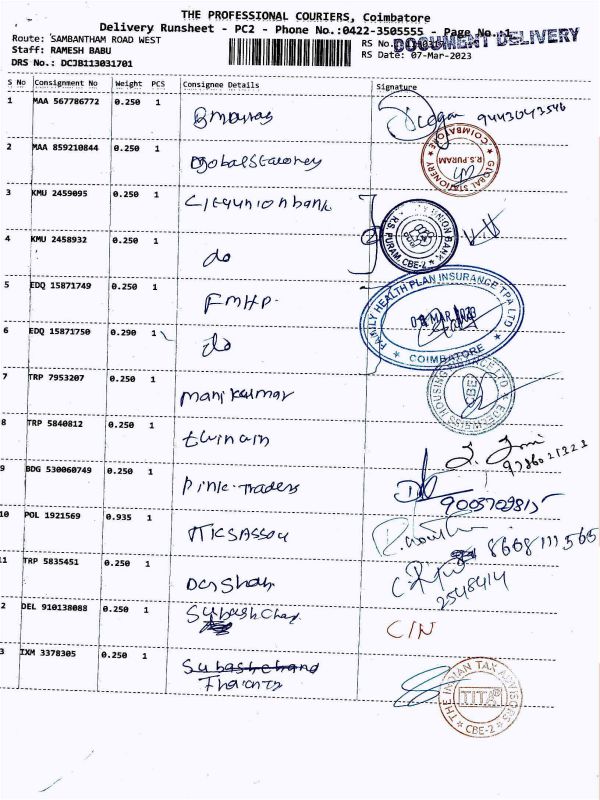 THE PROFESSIONAL COURIERS, Coimbatore
Delivery Runsheet - PC2 - Phone No.:0422-3505555 - Page No.:1
DOCUMENT DELIVERY
Route: SAMBANTHAM ROAD WEST
RS No.
Staff: RAMESH BABU
RS Date: 07-Mar-2023
DRS No.: DCJB113031701
S No Consignment No Weight PCS Consignee Details Signature
1 MAA 567786772 0.250 1 9443043546
2 MAA 859210844 0.250 1 Globalstationery
GLOBAL STATIONERY COIMBATORE R.S.PURAM
3 KMU 2459095 0.250 1 Cityunionbank
UNION BANK R.S. PURAM, CBE-2
4 KMU 2458932 0.250 1 do
5 EDQ 15871749 0.250 1 FMHP.
FAMILY HEALTH PLAN INSURANCE TPA LTD COIMBATORE
6 EDQ 15871750 0.290 1 do
7 TRP 7953207 0.250 1 manikumar
HOUSING FINANCE LTD
8 TRP 5840812 0.250 1 twinain
9786021323
9 BDG 530060749 0.250 1 Pink-Traders
9003709815
10 POL 1921569 0.935 1
8608111565
11 TRP 5835451 0.250 1 Darshan
2548414
2 DEL 910138088 0.250 1 Subashchan C/N
3 IXM 3378305 0.250 1 Subashchand
THE INDIAN TAX ADVISORS TITA CBE-2